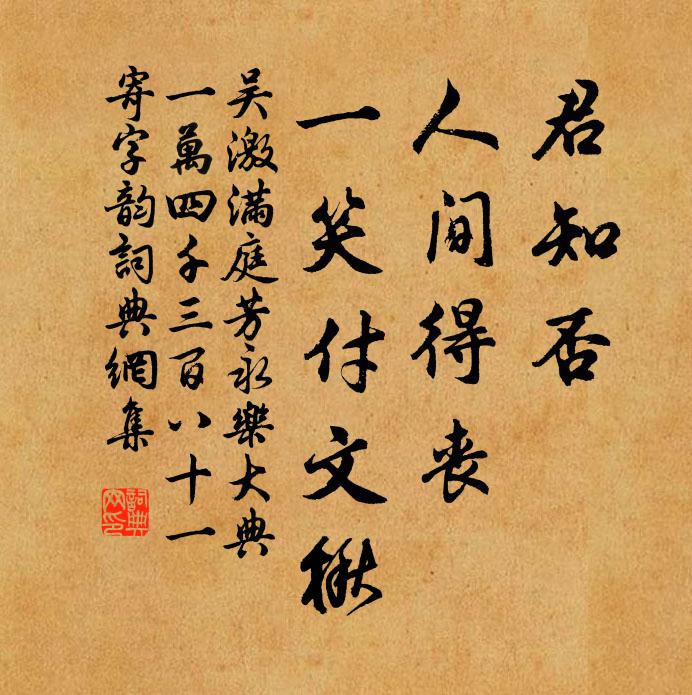 君知否
人間得喪
一笑付文楸
吴激滿庭芳永樂大典
一萬四千三百八十一
寄字韵詞典網集
詞典網印